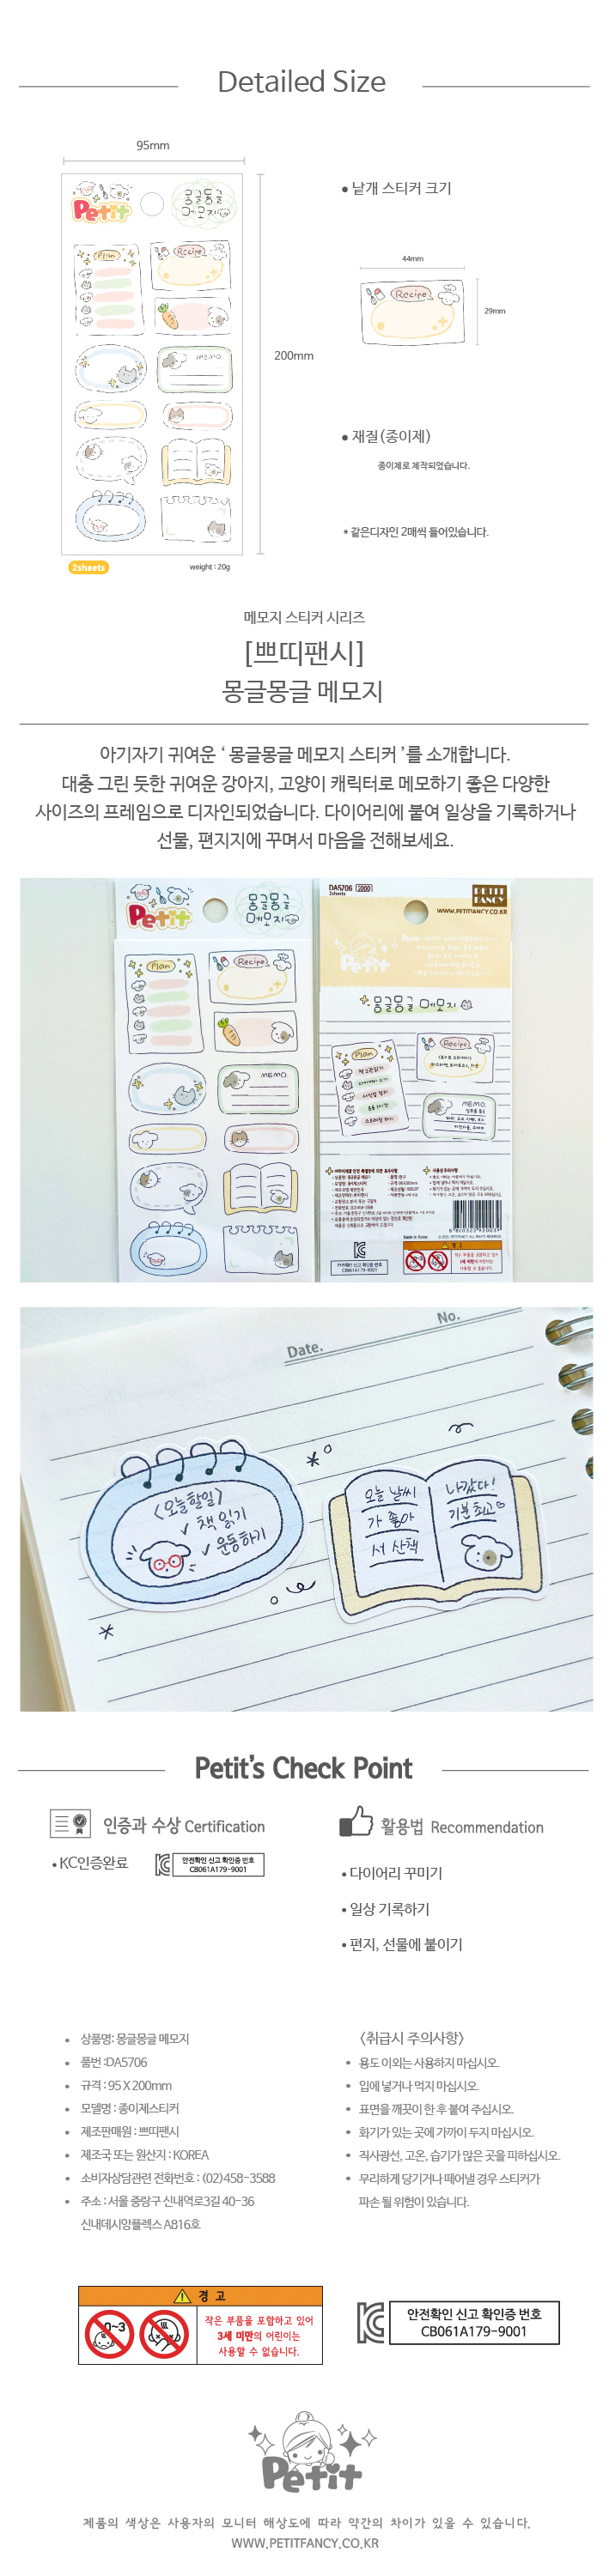 Detailed Size
95mm
Petit
몽글몽글
메모지
Plan
Recipe
MEMO.
200mm
2sheets
weight : 20g
• 낱개 스티커 크기
44mm
Recipe
29mm
• 재질(종이제)
종이제로 제작되었습니다.
* 같은디자인 2매씩 들어있습니다.
메모지 스티커 시리즈
[쁘띠팬시]
몽글몽글 메모지
아기자기 귀여운 ‘ 몽글몽글 메모지 스티커 ’를 소개합니다.
대충 그린 듯한 귀여운 강아지, 고양이 캐릭터로 메모하기 좋은 다양한
사이즈의 프레임으로 디자인되었습니다. 다이어리에 붙여 일상을 기록하거나
선물, 편지지에 꾸며서 마음을 전해보세요.
Petit
몽글몽글
메모지
Plan
Recipe
MEMO
DA5706 2000
2sheets
PETIT FANCY
WWW.PETITFANCY.CO.KR
Petit
몽글몽글 메모지
Plan
Recipe
MEMO.
경고
안전확인 신고 확인증 번호
CB061A179-9001
Date.
No.
<오늘할일>
✓ 책 읽기
✓ 운동하기
오늘 날씨
가 좋아
서 산책
나갔다!
기분 최고♡
Petit's Check Point
인증과 수상 Certification
• KC인증완료
안전확인 신고 확인증 번호
CB061A179-9001
활용법 Recommendation
• 다이어리 꾸미기
• 일상 기록하기
• 편지, 선물에 붙이기
• 상품명: 몽글몽글 메모지
• 품번 :DA5706
• 규격 : 95 X 200mm
• 모델명 : 종이제스티커
• 제조판매원 : 쁘띠팬시
• 제조국 또는 원산지 : KOREA
• 소비자상담관련 전화번호 : (02)458-3588
• 주소 : 서울 중랑구 신내역로3길 40-36
신내데시앙플렉스 A816호
<취급시 주의사항>
• 용도 이외는 사용하지 마십시오.
• 입에 넣거나 먹지 마십시오.
• 표면을 깨끗이 한 후 붙여 주십시오.
• 화기가 있는 곳에 가까이 두지 마십시오.
• 직사광선, 고온, 습기가 많은 곳을 피하십시오.
• 무리하게 당기거나 떼어낼 경우 스티커가
파손 될 위험이 있습니다.
경 고
0-3
작은 부품을 포함하고 있어
3세 미만의 어린이는
사용할 수 없습니다.
안전확인 신고 확인증 번호
CB061A179-9001
Petit
제품의 색상은 사용자의 모니터 해상도에 따라 약간의 차이가 있을 수 있습니다.
WWW.PETITFANCY.CO.KR